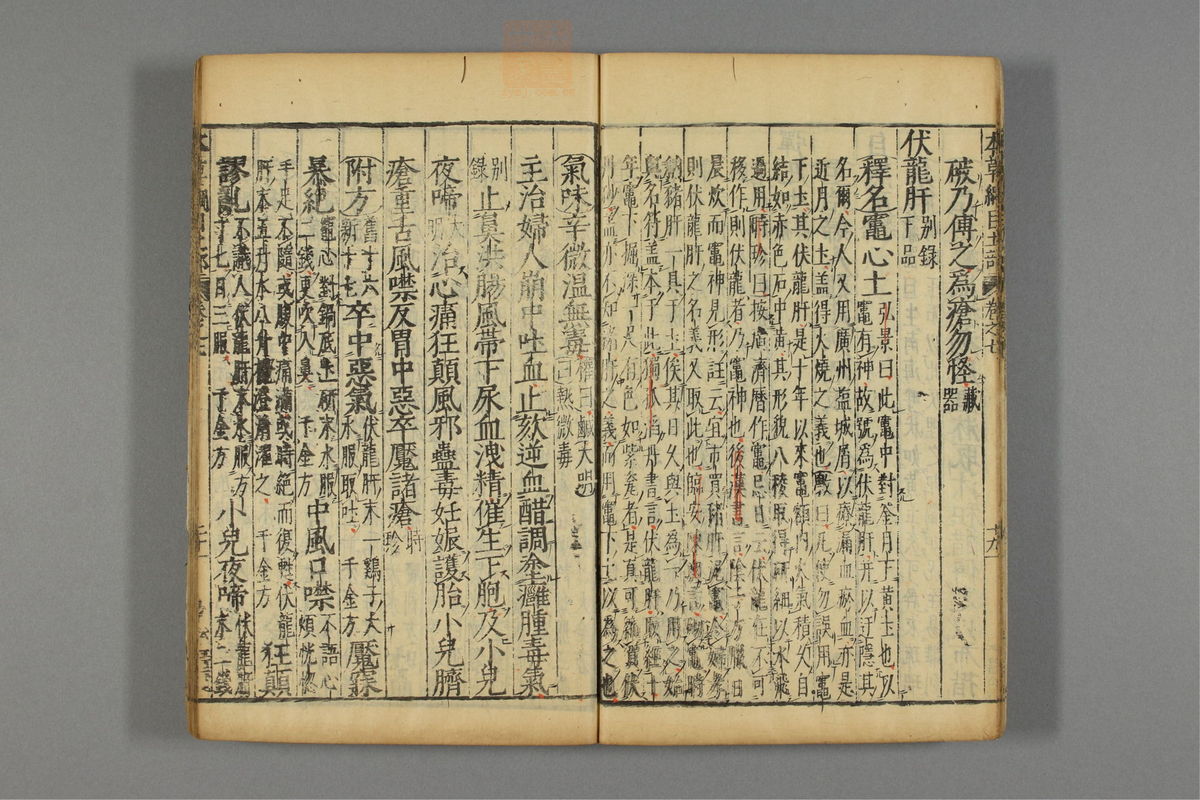 破乃傳之為瘡勿怪藏器
伏龍肝別錄下品
釋名竈心土弘景曰此竈中對釜月下黃土也以
竈有神故號為伏龍肝并以迂隱其
名爾今人又用廣州鹽城屑以療漏血瘀血亦是
近月之土蓋得火燒之義也斆曰凡使勿誤用竈
下土其伏龍肝是十年以來竈額內火氣積久自
結如赤色石中黃其形貌八稜取得研細以水飛
過用時珍曰按廣濟曆作竈忌日云伏龍在不可
後作則伏龍者乃竈神也後漢書言陰子方臘日
晨炊而竈神見形註云宜市買豬肝泥竈令婦孝
則伏龍肝之名義又取此也臨安
豬肝一具于土俟其日久與土為一乃用之始
名符蓋本于此獨孤滔丹書言伏龍肝取經十
年竈下掘深一尺有色如紫瓷者是真可縮賀伏
丹砂蓋亦不知豬肝之義而用竈下土以為之也
氣味辛微溫無毒權曰鹹大明曰熱微毒
主治婦人崩中吐血止欬逆血醋調塗癰腫毒氣
別錄止鼻洪腸風帶下尿血洩精催生下胞及小兒
夜啼大明治心痛狂顛風邪蠱毒妊娠護胎小兒臍
瘡重舌風噤反胃中惡卒魘諸瘡時珍
附方舊十六新十七卒中惡氣伏龍肝末一雞子大水服取吐千金方魘寐
暴絕竈心對鍋底土研末水服二錢更吹入鼻千金方中風口噤不語心煩恍惚
手足不隨或腹中痛滿或時絕而復甦伏龍
肝末五升水八升攪澄清濯之千金方狂顛
謬亂不識人伏龍肝末水服方寸匕日三服千金方小兒夜啼伏龍肝末二錢